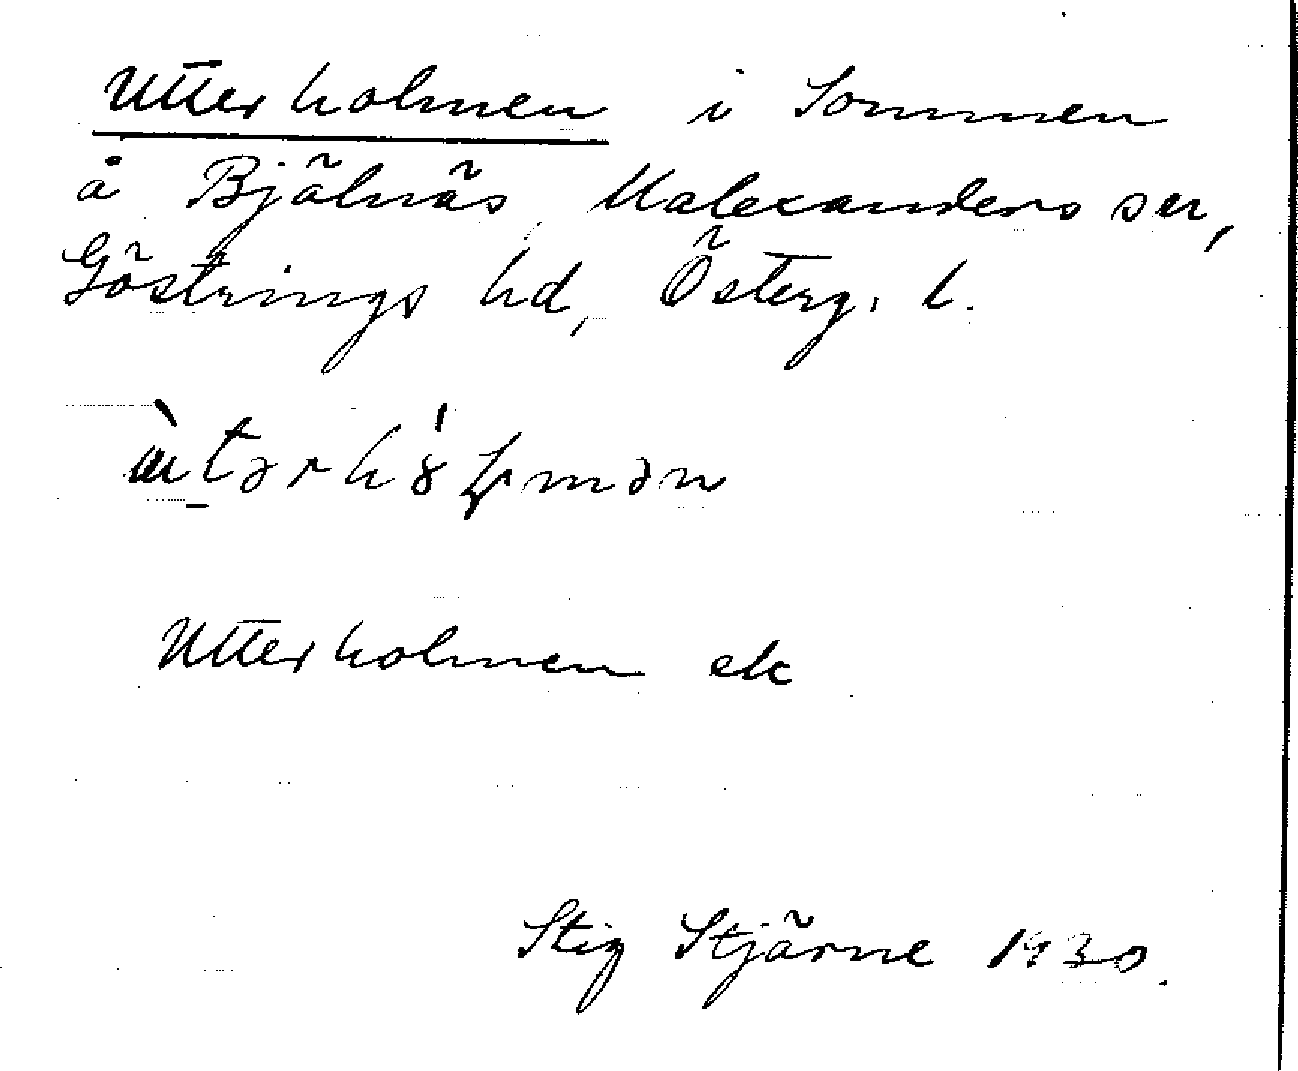 Utterholmen i Sommen
å Bjälnäs, Malexanders sn,
Göstrings hd, Österg. l.
Utterholmen ek
Stig Stjärne 1930.